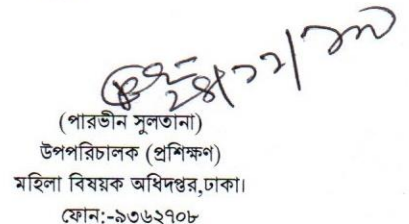 (পারভীন সুলতানা)
উপপরিচালক (প্রশিক্ষণ)
মহিলা বিষয়ক অধিদপ্তর,ঢাকা।
ফোন:-৯৩৬২৭০৮